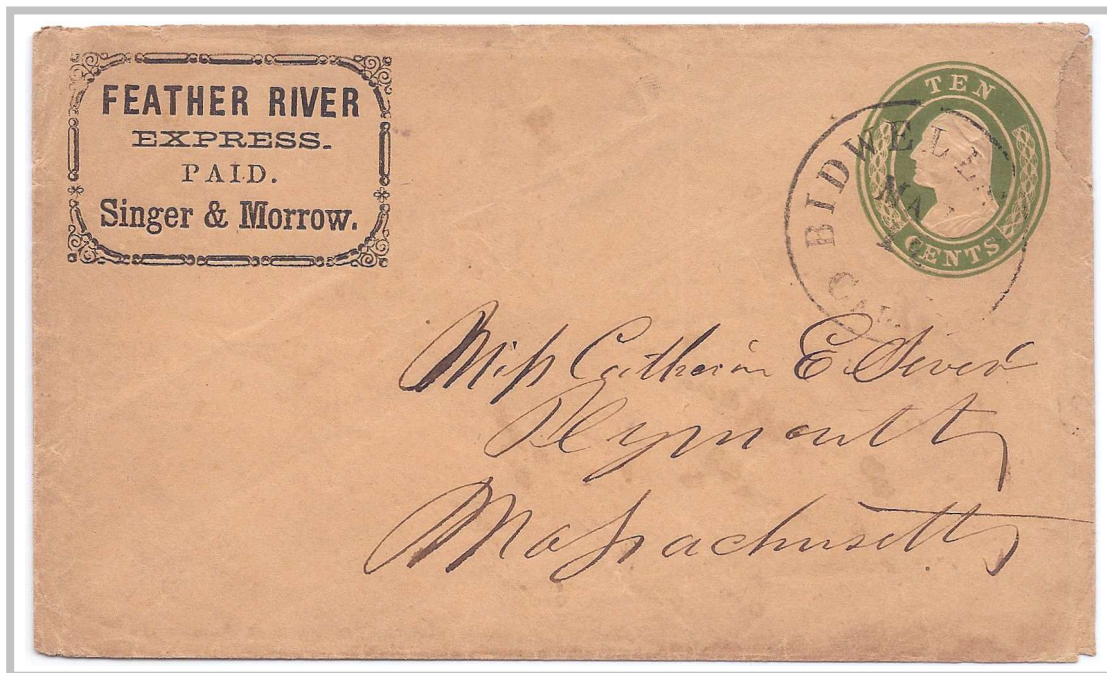 FEATHER RIVER
EXPRESS.
PAID.
Singer & Morrow.
TEN
CENTS
BIDWELL
CAL
Miss E.
Plymouth
Massachusetts